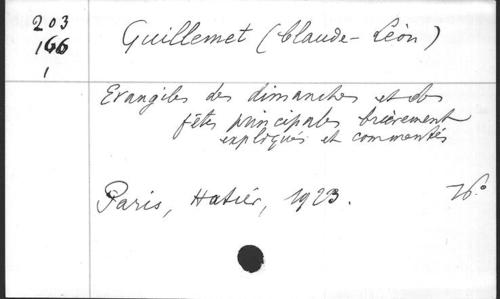 203
166
1
Guillemet (Claude-Léon)
Evangiles des dimanches et des
fêtes principales brièrement
expliqués et commentés
Paris, Hatier, 1923.
16º